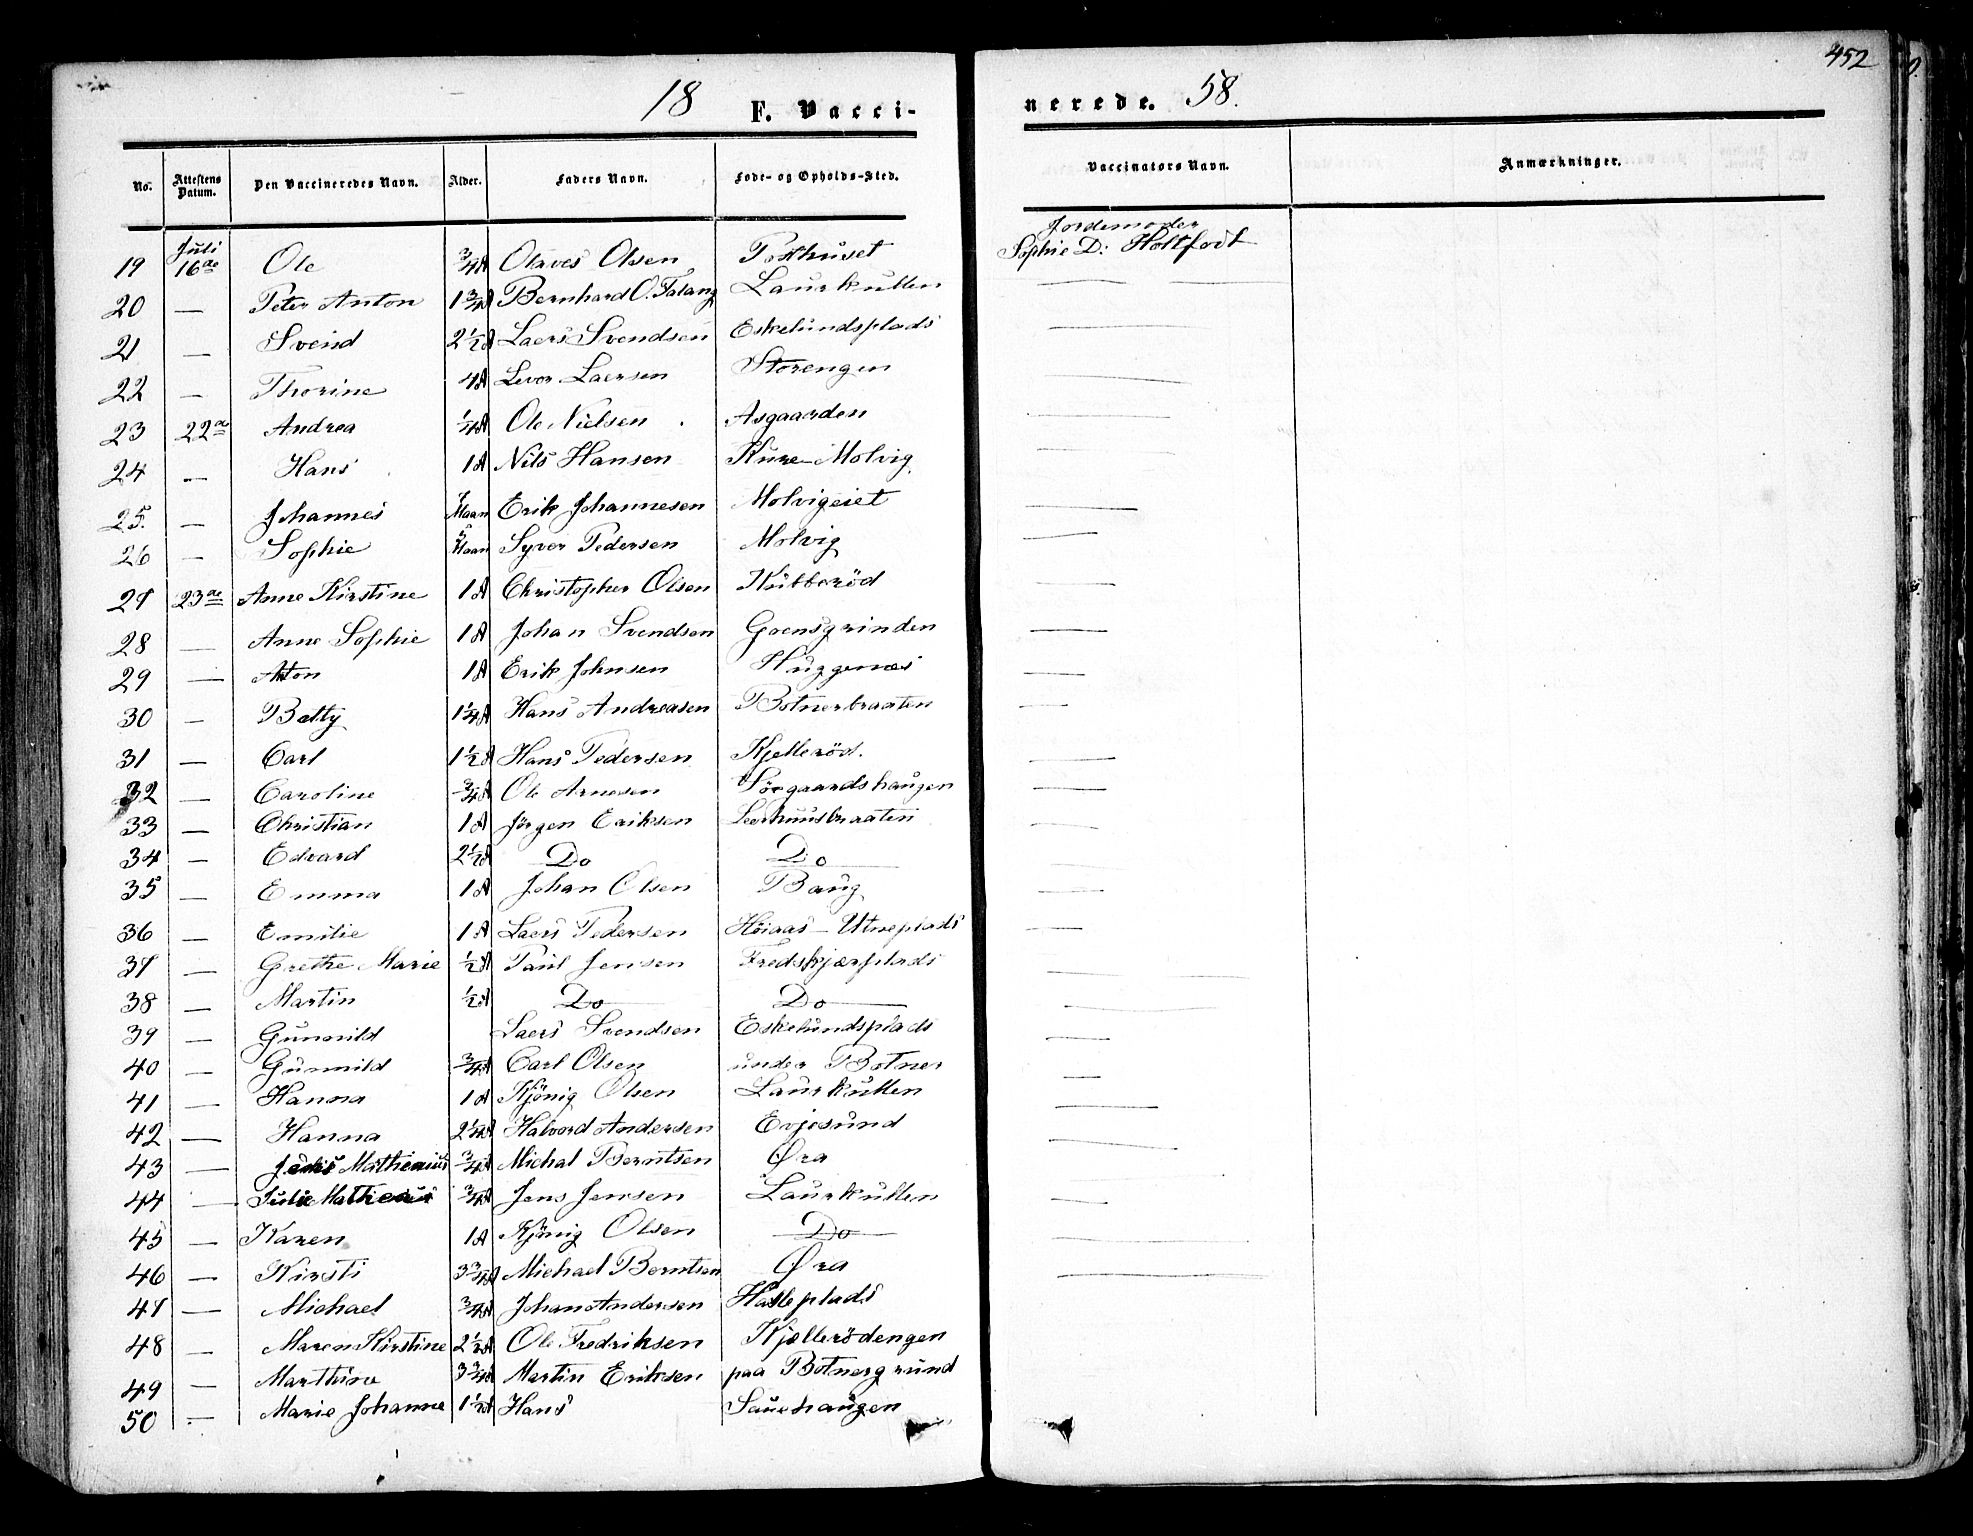 452
18 F. Vacci-nerede. 58.
No. Attestens Datum. Den Vaccineredes Navn. Alder. Faders Navn. Føde- og Opholds-Sted. Vaccinators Navn. Anmærkninger.
19 Juli 16de Ole 3/4 A Olaves Olsen Posthuset Jordemoder Sophie D: Holtfodt
20 — Peter Anton 1 3/4 A Bernhard O. Falang Laurkullen — —
21 — Svend 2 1/2 A Laers Svendsen Eskelundsplads —
22 — Thorine 4 A Levor Laersen Storengen —
23 22de Andrea 1/4 A Ole Nielsen Asgaarden —
24 — Hans 1 A Nils Hansen Kure-Molvig —
25. — Johannes Maan Erik Johannesen Molvigeiet —
26 — Sophie 5 Maan Syver Pedersen Molvig —
27 23de Anne Kirstine 1 A Christopher Olsen Kubberöd —
28 — Anne Sophie 1 A Johan Svendsen Goensgrinden —
29 — Anton 1 A Erik Johnsen Huggenæs —
30 — Betty 1 1/4 A Hans Andreasen Botnerbraaten —
31 — Carl 1 1/2 A Hans Pedersen Kjelleröd. —
32 — Caroline 3/4 A Ole Arnesen Sörgaardshaugen —
33 — Christian 1 A Jörgen Eriksen Leerhuusbraaten —
34 — Edvard 2 1/2 A Do Do —
35 — Emma 1 A Johan Olsen Baug —
36 — Emilie 1 A Laers Pedersen Höiaas-Utneplads —
37 — Grethe Marie 1/2 A Paul Jensen Fredskjærplads — —
38 — Martin 1/2 A Do Do —
39 — Gunnild Laers Svendsen Eskelundsplads —
40 — Gunnild 3/4 A Carl Olsen under Botner —
41 — Hanna 1 A Kjönig Olsen Laurkullen —
42 — Hanna 2 1/4 A Halvord Andersen Evjesund —
43 — Mathenius 3/4 A Michal Berntsen Øra —
44 — Julie 3/4 A Jens Jensen Laurkullen —
45 — Karen 1 A Kjönig Olsen Do —
46 — Kirsti 3 3/4 A Michael Berntsen Øra —
47 — Michael 3/4 A Johan Andersen Halleplads
48 — Maren Kirstine 2 1/2 A Ole Fredriksen Kjellerödengen
49 — Marthine 3 3/4 A Martin Eriksen paa Botnergrund
50 — Marie Johanne 1 1/2 A Hans Sauehaugen